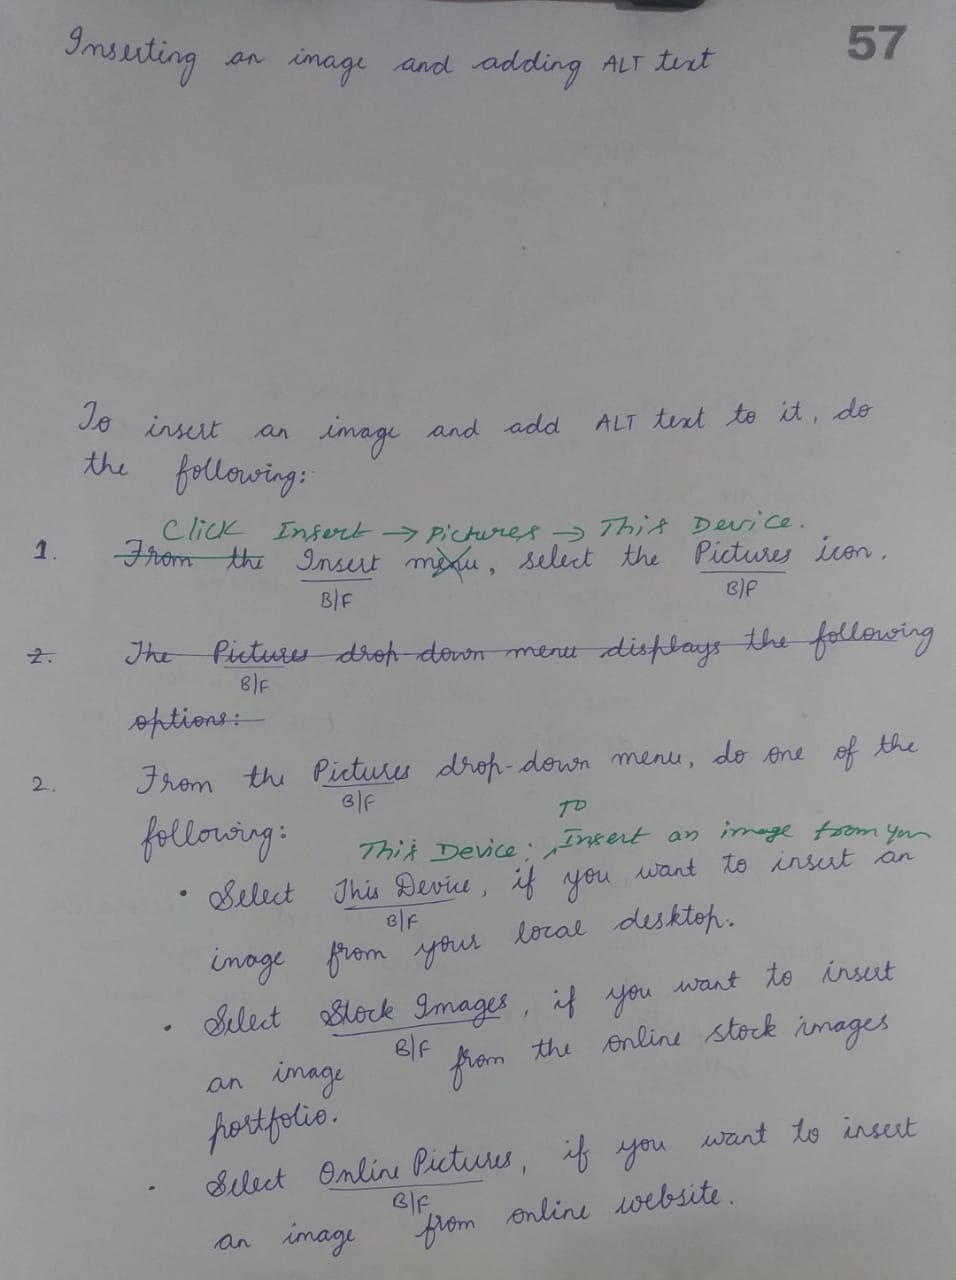 Inserting an image and adding ALT text
57
To insert an image and add ALT text to it, do
the following:
Click Insert → Pictures → This Device.
1. From the Insert menu, select the Pictures icon.
B/F B/F
2. The Pictures drop-down menu displays the following
B/F
options:
2. From the Pictures drop-down menu, do one of the
B/F
following:
To
This Device: Insert an image from your
• Select This Device, if you want to insert an
B/F
image from your local desktop.
• Select Stock Images, if you want to insert
B/F
an image from the online stock images
portfolio.
• Select Online Pictures, if you want to insert
B/F
an image from online website.